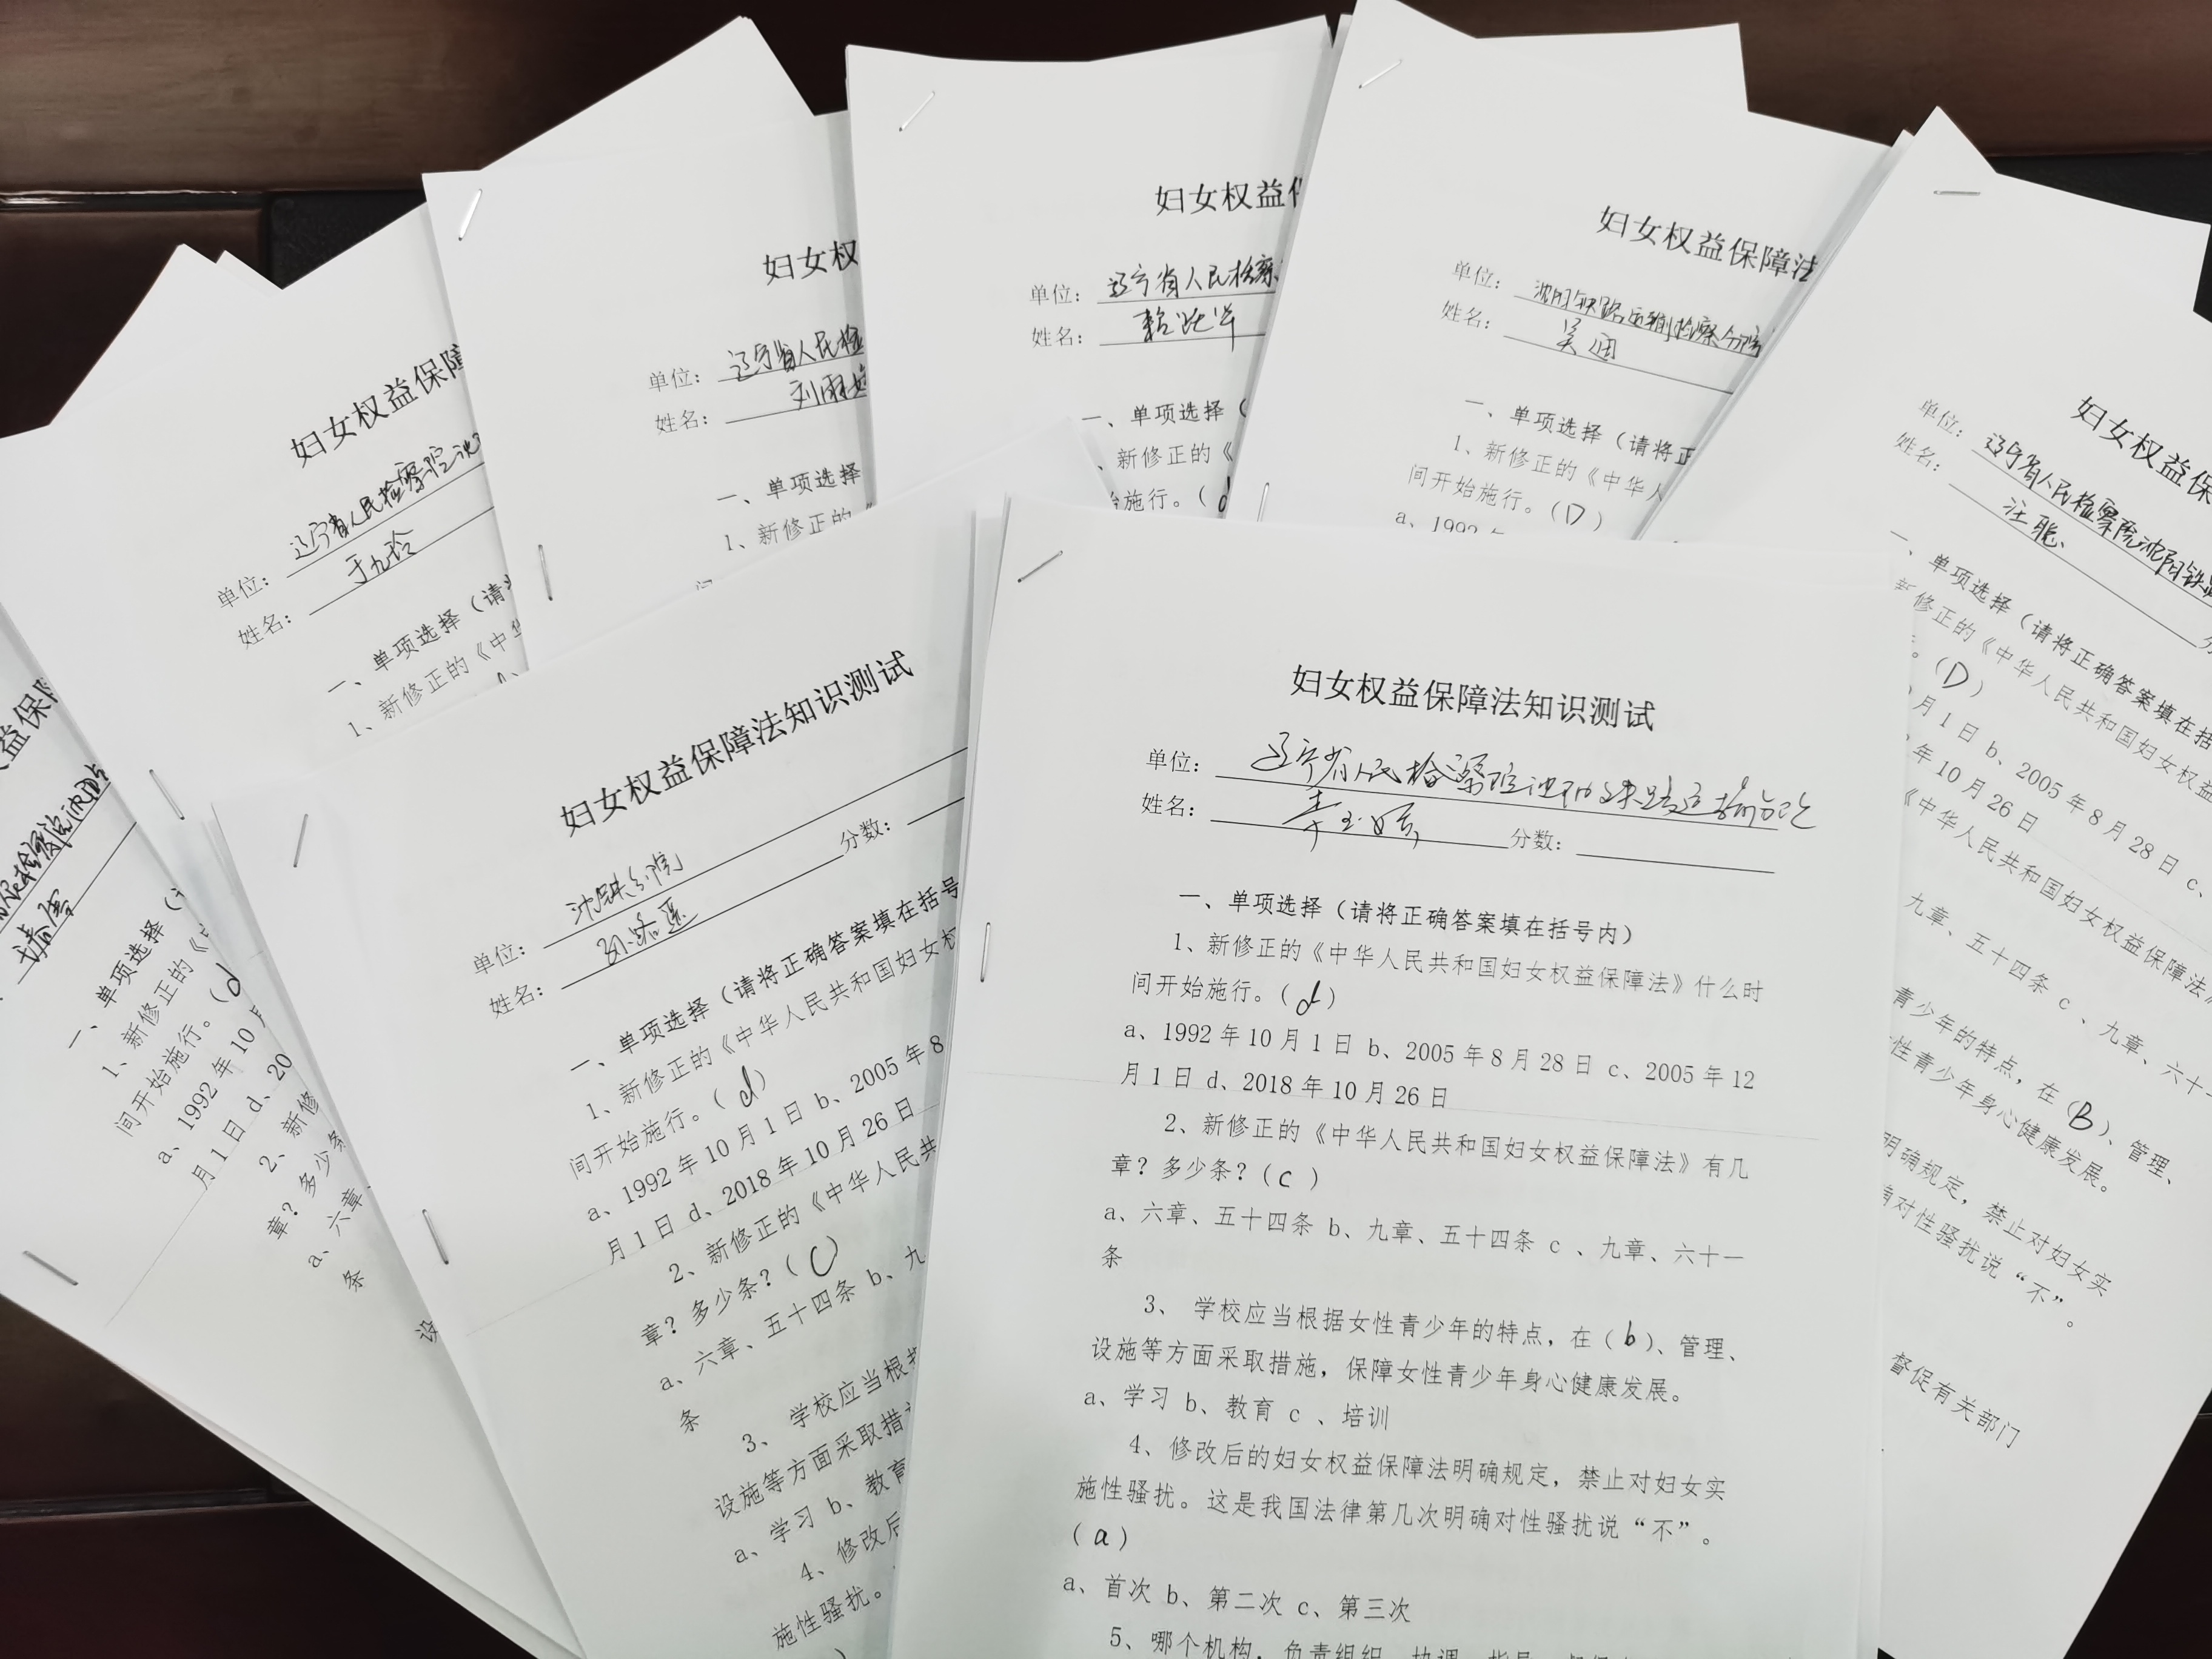 妇女权益保
单位：辽宁省人民检察院沈
姓名：于九玲
一、单项选择（请
1、新修正的《中华
妇女权
单位：辽宁省人民检
姓名：刘雨
一、单项选择
1、新修正的《
妇女权益
单位：辽宁省人民检察
姓名：
一、单项选择（
、新修正的《
施行。（d
妇女权益保障法
单位：沈阳铁路运输检察分院
姓名：吴
一、单项选择（请将正
1、新修正的《中华人
间开始施行。（D）
a、1992年
妇女权益保
单位：辽宁省人民检察院沈阳铁路
姓名：汪聪
一、单项选择（请将正确答案填在括
新修正的《中华人民共和国妇女权益
。（D）
月1日 b、2005年8月28日 c、
年10月26日
《中华人民共和国妇女权益保障法》
九章、五十四条 c 、九章、六十一
青少年的特点，在（B）、管理、
性青少年身心健康发展。
明确规定，禁止对妇女实
确对性骚扰说“不”。
督促有关部门
益保障
人民检察院沈阳
一、单项选择（
1、新修正的《中
间开始施行。（d
a、1992年10月
月1日 d、20
2、新修
章？多少条
a、六章、
条
设
妇女权益保障法知识测试
单位：沈铁分院
姓名：孙路遥
分数：
一、单项选择（请将正确答案填在括号
1、新修正的《中华人民共和国妇女权
间开始施行。（d）
a、1992年10月1日 b、2005年8
月1日 d、2018年10月26日
2、新修正的《中华人民共
章？多少条？（C）
a、六章、五十四条 b、九
条
3、 学校应当根
设施等方面采取措
a、学习 b、教育
4、修改后
施性骚扰。
）
妇女权益保障法知识测试
单位：辽宁省人民检察院沈阳铁路运输分院
姓名：
分数：
一、单项选择（请将正确答案填在括号内）
1、新修正的《中华人民共和国妇女权益保障法》什么时
间开始施行。（d）
a、1992年10月1日 b、2005年8月28日 c、2005年12
月1日 d、2018年10月26日
2、新修正的《中华人民共和国妇女权益保障法》有几
章？多少条？（c ）
a、六章、五十四条 b、九章、五十四条 c 、九章、六十一
条
3、 学校应当根据女性青少年的特点，在（b）、管理、
设施等方面采取措施，保障女性青少年身心健康发展。
a、学习 b、教育 c 、培训
4、修改后的妇女权益保障法明确规定，禁止对妇女实
施性骚扰。这是我国法律第几次明确对性骚扰说“不”。
（a）
a、首次 b、第二次 c、第三次
5、哪个机构，负责组织、协调、指导、